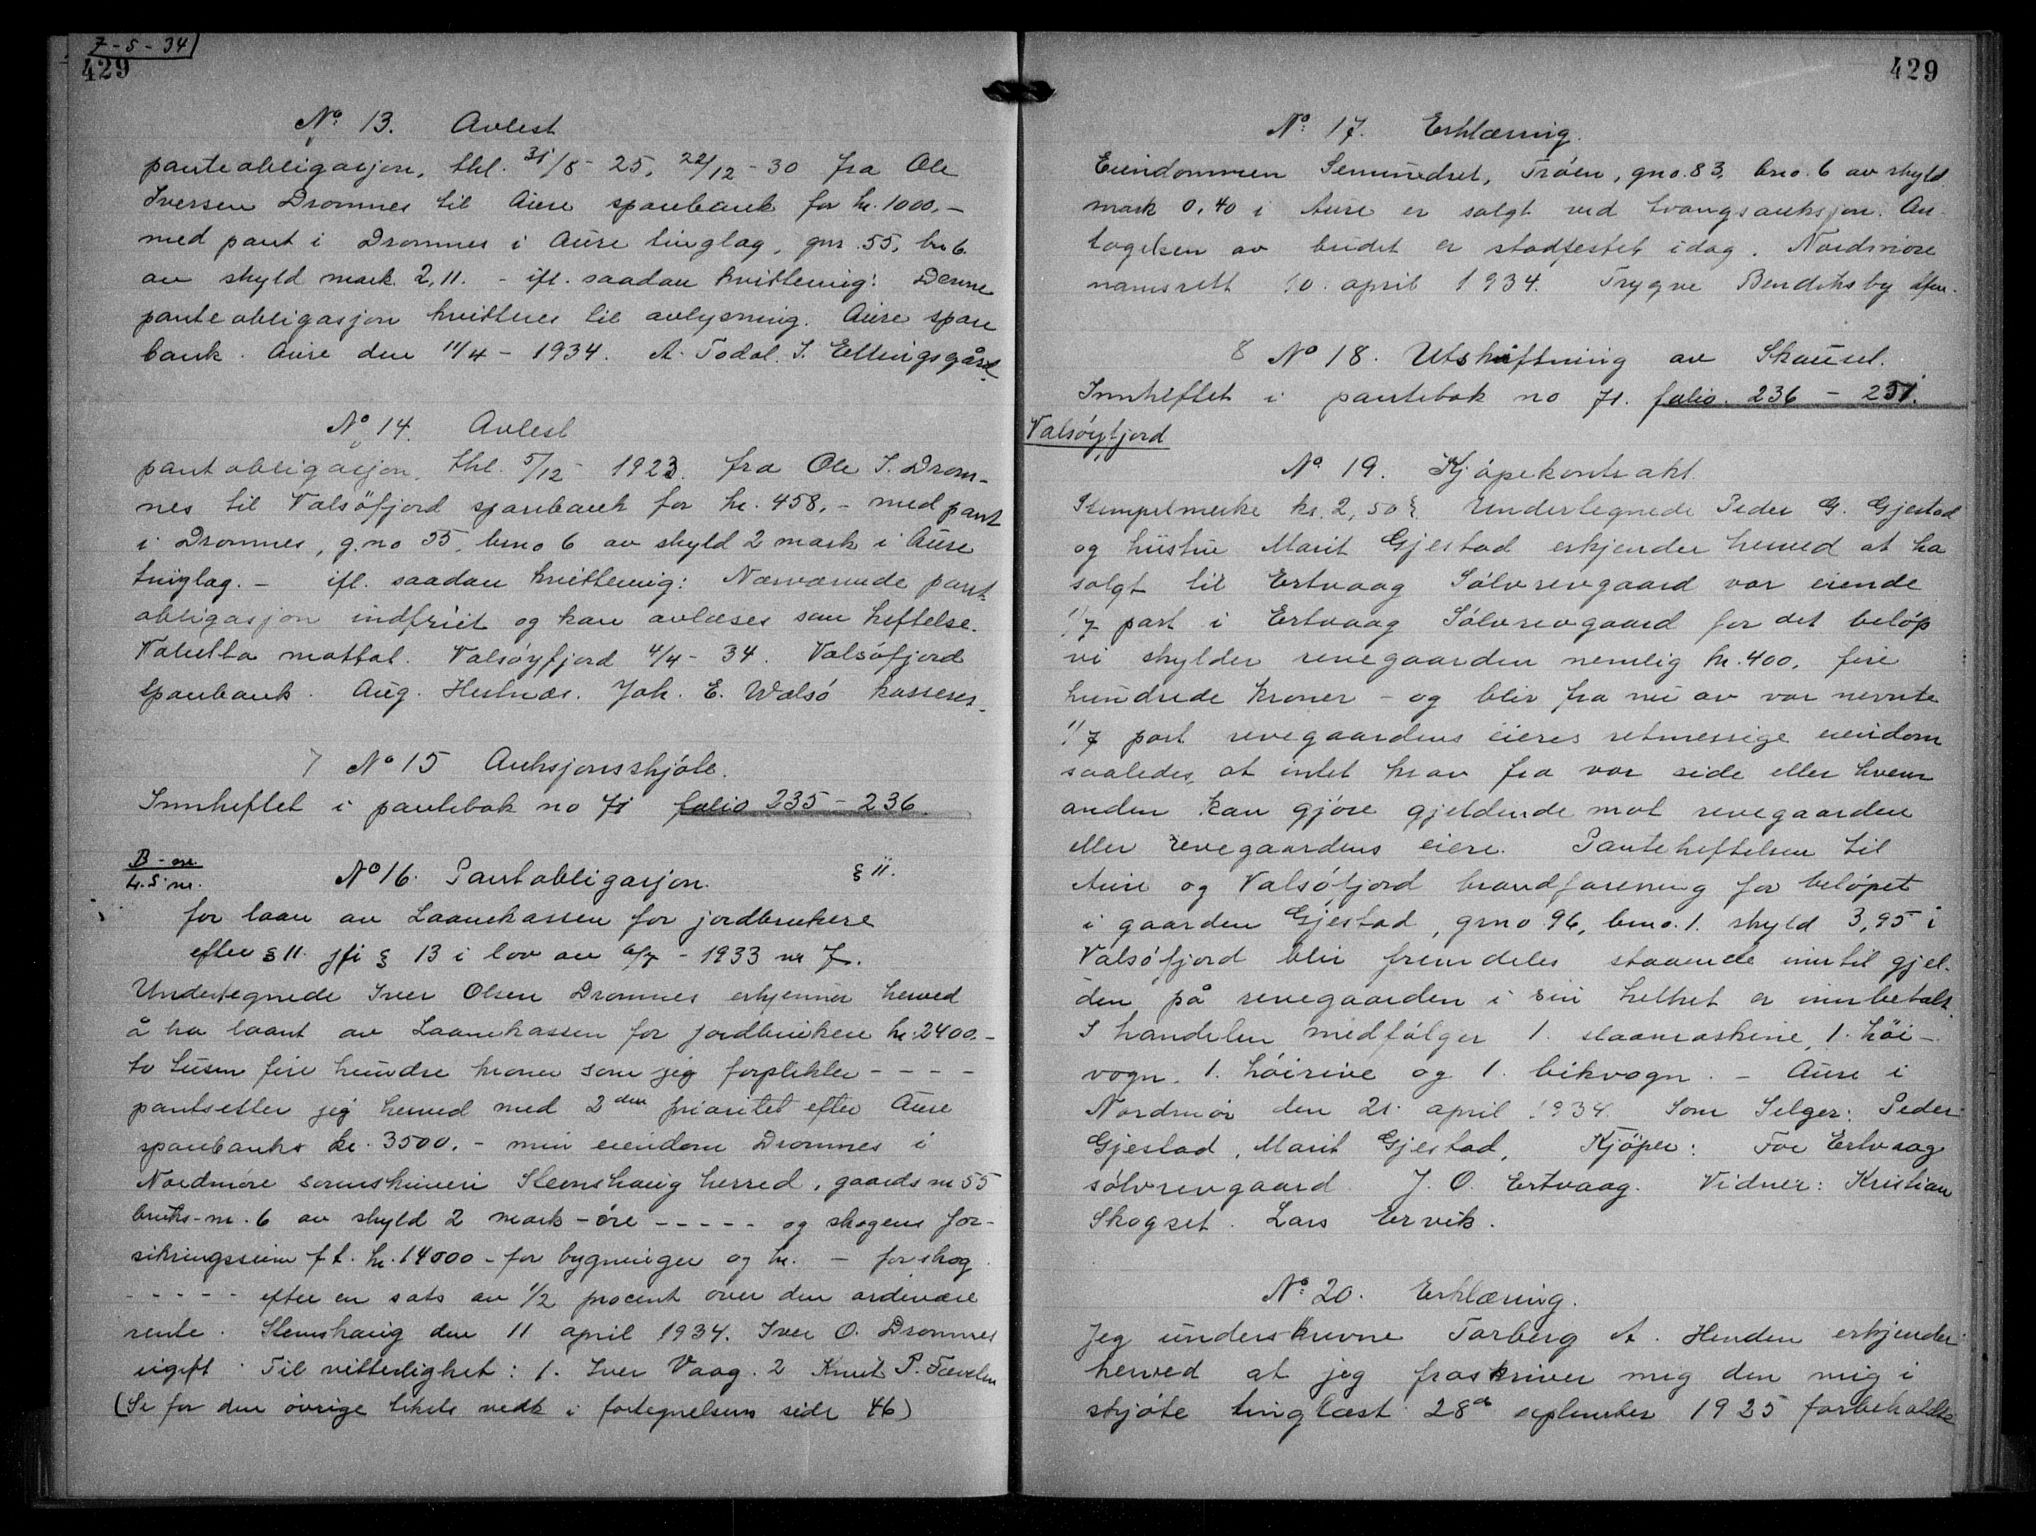 7-5-34
429
No. 13. Avlest
panteobligasjon, thl. 31/8-25, 22/12-30 fra Ole
Iversen Dromnes til Aure sparebank for kr. 1000,-
med pant i Dromnes i Aure tinglag, gnr. 55, br. 6
av skyld mark 2,11. - ifl. saadan kvittering: Denne
panteobligasjon kvitteres til avlysning. Aure spare
bank. Aure den 11/4-1934. A. Todal. I. Ellingsgård.
No 14. Avlest
pantobligasjon, thl. 5/12-1923. fra Ole I. Drom-
nes til Valsöfjord sparebank for kr. 458,- med pant
i Dromnes, g.no 55, brno 6 av skyld 2 mark i Aure
tinglag. - ifl. saadan kvittering: Nærværende pant-
obligasjon indfriet og kan avlæses som heftelse.
Valutta mottat. Valsøyfjord 4/4-34. Valsöfjord
Sparebank. Aug. Hulnæs. Joh. E. Walsö kasserer.
7 No 15 Auksjonsskjøte.
Innheftet i pantebok no 71 folio 235-236.
B-øre
L.S. nr.
No 16. Pantobligasjon. § 11.
for laan av Laanekassen for jordbrukere
efter § 11. jfr § 13 i lov av 6/7-1933 nr 7.
Undertegnede Iver Olsen Dromnes erkjenner herved
å ha laant av Laanekassen for jordbrukere kr. 2400,-
to tusen fire hundre kroner som jeg forplikter - - - -
pantsetter jeg herved med 2den prioritet efter Aure
sparebanks kr. 3500,- min eiendom Dromnes i
Nordmøre sorenskriveri Stemshaug herred, gaards nr 55
bruks-nr. 6 av skyld 2 mark - øre - - - - - og skogens for-
sikringssum f.t. kr. 14000 - for bygninger og kr. - for skog
- - - - - efter en sats av 1/2 procent over den ordinære
rente. Stemshaug den 11 april 1934. Iver O. Dromnes
ugift. Til vitterlighet: 1. Iver Vaag. 2 Knut P. Tævelen
(Se for den övrige tekst vedk i fortegnelsens side 46)
429
No. 17. Erklæring.
Eiendommen Semundset, Trøen, gno. 83, bno. 6 av skyld
mark 0,40 i Aure er solgt ved tvangsauksjon. An-
tagelsen av budet er stadfestet idag. Nordmøre
namsrett 10. april 1934. Trygve Bendiksby
8 No 18. Utskiftning av Skausel.
Innheftet i pantebok no 71. folio. 236-251.
Valsöyfjord
No 19. Kjøpekontrakt.
Stempelmerke kr. 2,50. Undertegnede Peder G. Gjestad
og hustru Marit Gjestad erkjender herved at ha
solgt til Ertvaag Sølvrevgaard vor eiende
1/7 part i Ertvaag Sølvrevgaard for det beløp
vi skylder revegaarden nemlig kr. 400, fire
hundrede kroner - og blir fra nu av vor nevnte
1/7 part revegaardens eieres retmessige eiendom
saaledes, at intet krav fra vor side eller hvem
anden kan gjøre gjeldende mot revegaarden
eller revegaardens eiere. Panteheftelsen til
Aure og Valsöfjord brandforening for beløpet
i gaarden Gjestad, grno. 96, brno. 1. skyld 3,95 i
Valsöfjord blir fremdeles staaende inntil gjel-
den på revegaarden i sin helhet er innbetalt.
I handelen medfølger 1. slaamaskine, 1. høi-
vogn. 1. høirive og 1. bikvogn. - Aure i
Nordmør den 21. april 1934. Som Selger: Peder
Gjestad, Marit Gjestad, Kjøper: For Ertvaag
sølvrevgaard. J. O. Ertvaag. Vidner: Kristian
Skogset. Lars Ervik.
No 20. Erklæring.
Jeg underskrevne Torberg A. Henden erkjender
herved at jeg fraskriver mig den mig i
skjøte tinglæst 28de september 1925 forbeholdte